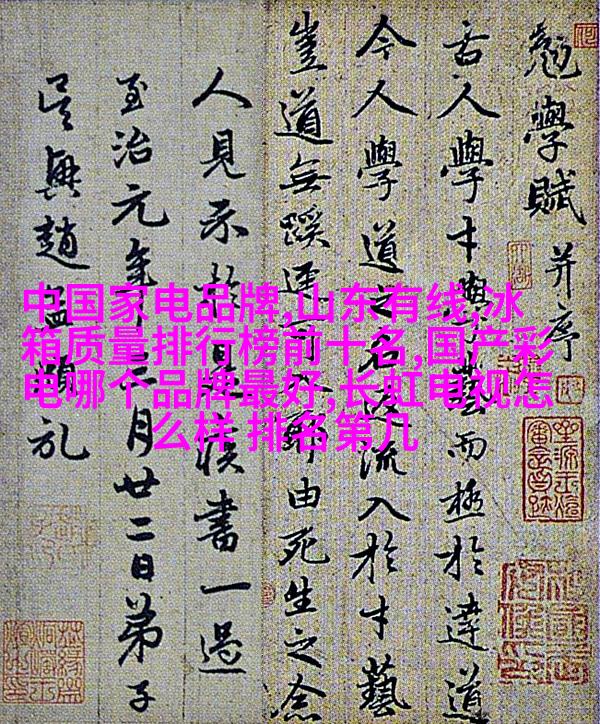 中国家电品牌,山东有线,冰
箱质量排行榜前十名,国产彩
电哪个品牌最好,长虹电视怎
么样 排名第几
勉學賦并序
古人學才與藝而極於達道
今人學道之名流入於才藝
豈道無蹊逕由死生之念
人見示書一過
至治元年月廿二日弟子
吳興趙孟頫